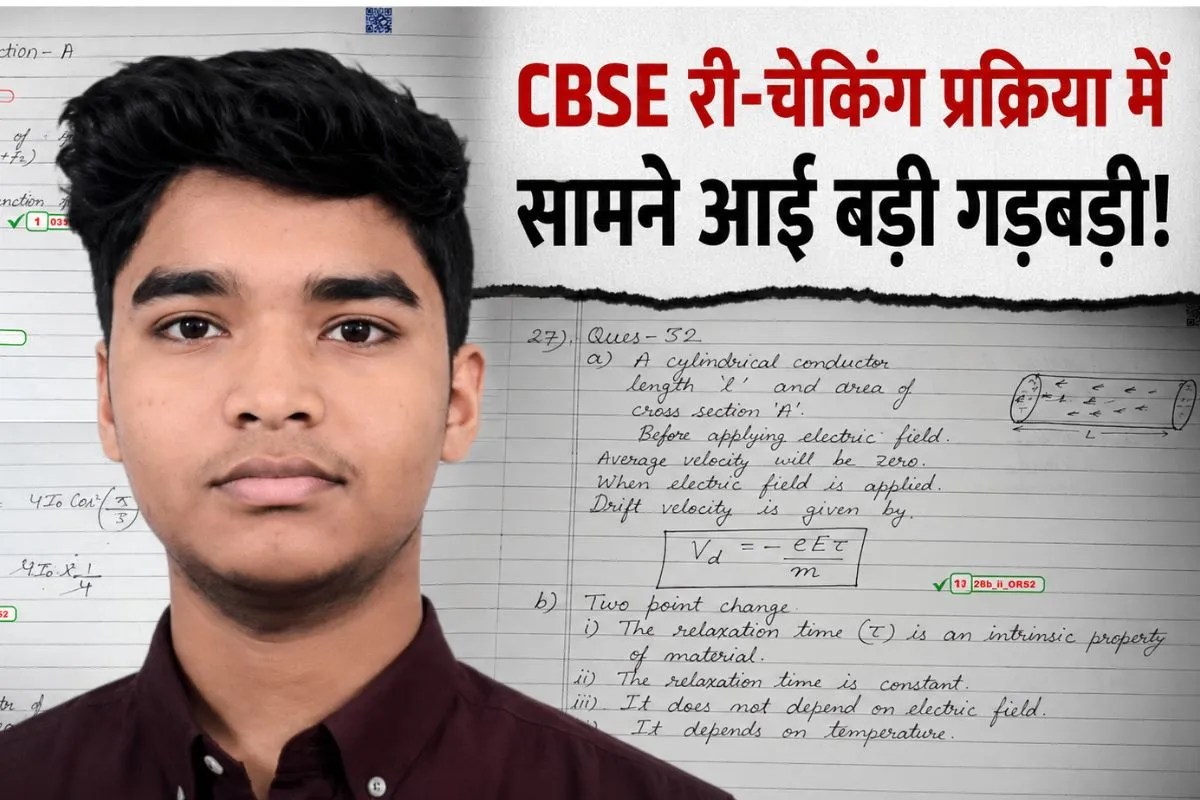 CBSE री-चेकिंग प्रक्रिया में
सामने आई बड़ी गड़बड़ी!
ction - A
of
+F2)
nction
1 039
4I₀ Cos²(π/3)
4I₀ × 1/4
52
tr of
27). Ques - 32
a) A cylindrical conductor
length 'l' and area of
cross section 'A'.
Before applying electric field.
Average velocity will be zero.
When electric field is applied.
Drift velocity is given by.
V_d = - eEτ/m
L
13 28b_ii_OR52
b) Two point change
i) The relaxation time (τ) is an intrinsic property
of material.
ii) The relaxation time is constant.
iii) It does not depend on electric field.
It depends on temperature.